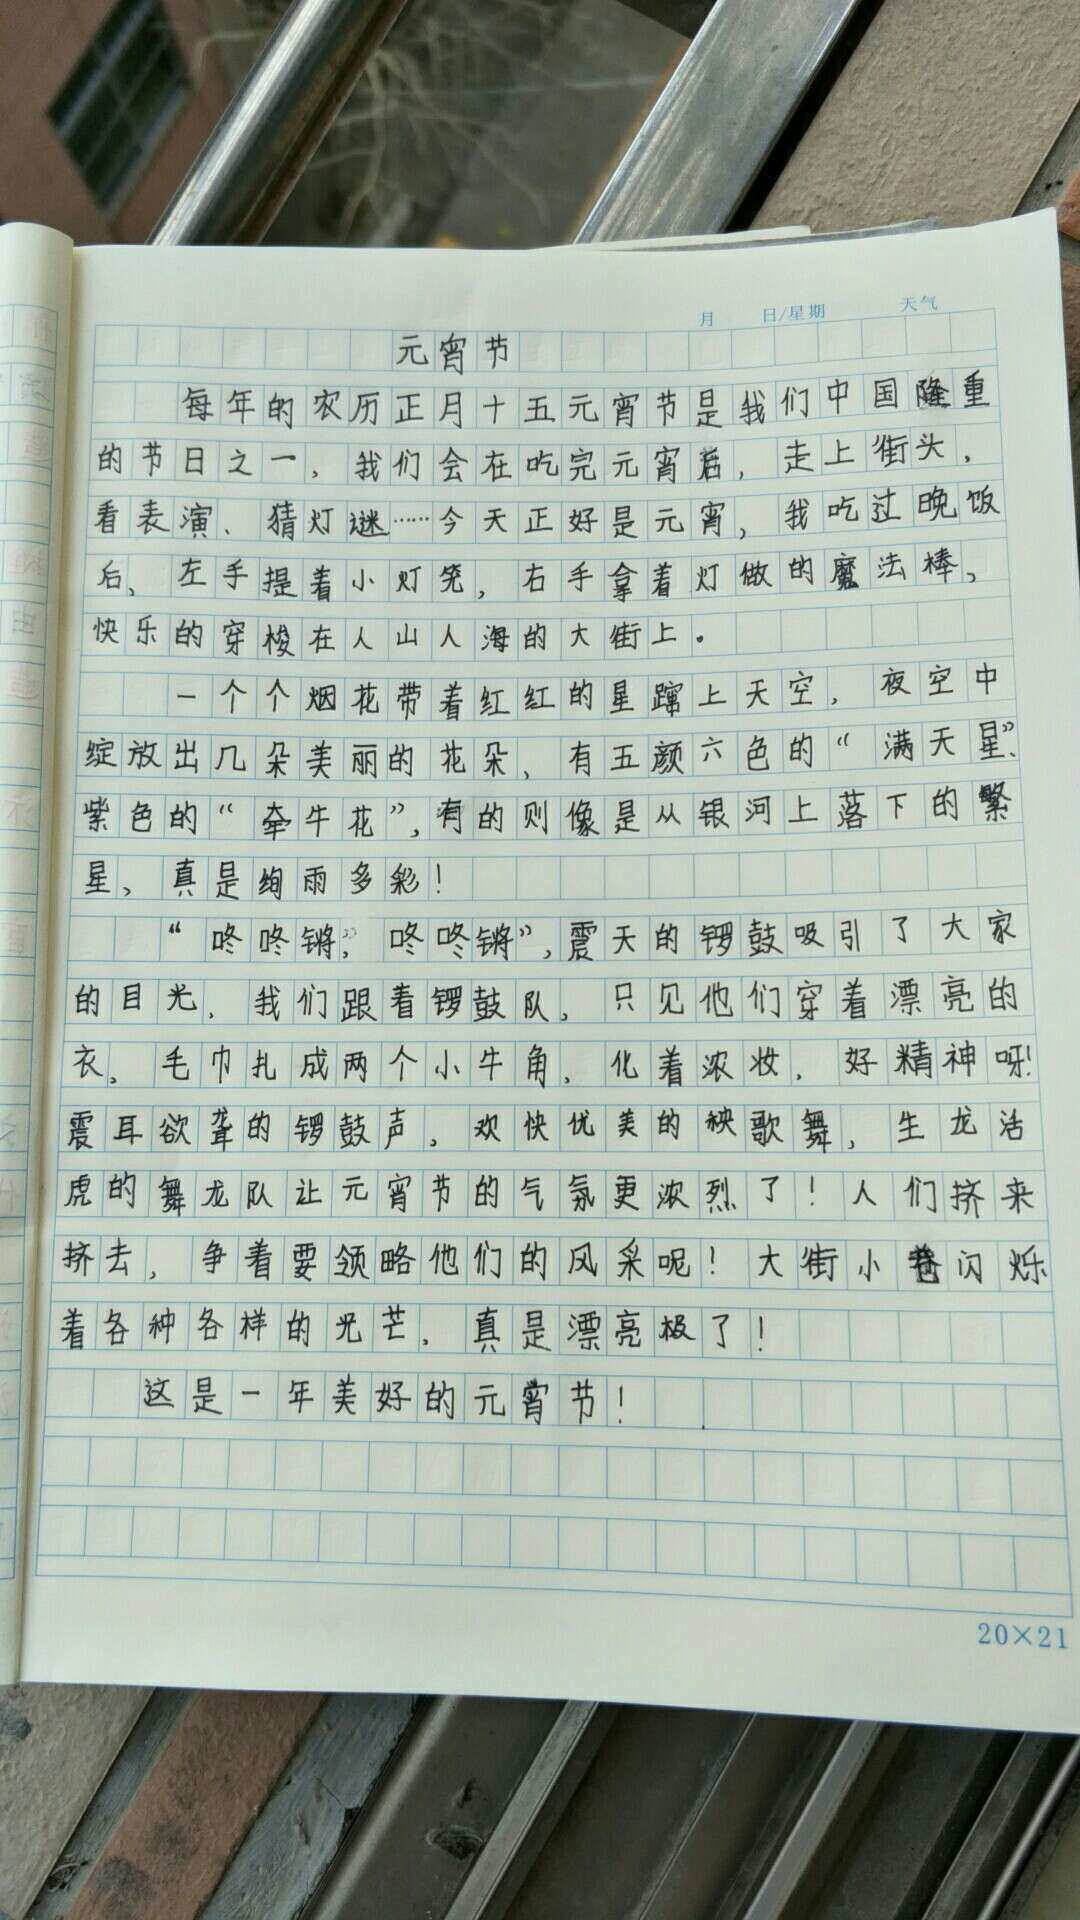 月 日/星期 天气
元宵节
每年的农历正月十五元宵节是我们中国隆重
的节日之一，我们会在吃完元宵后，走上街头，
看表演、猜灯谜……今天正好是元宵，我吃过晚饭
后、左手提着小灯笼，右手拿着灯做的魔法棒，
快乐的穿梭在人山人海的大街上。
一个个烟花带着红红的星蹿上天空，夜空中
绽放出几朵美丽的花朵、有五颜六色的“满天星”、
紫色的“牵牛花”，有的则像是从银河上落下的繁
星，真是绚雨多彩！
“咚咚锵，”咚咚锵”，震天的锣鼓吸引了大家
的目光，我们跟着锣鼓队，只见他们穿着漂亮的
衣，毛巾扎成两个小牛角，化着浓妆，好精神呀！
震耳欲聋的锣鼓声，欢快优美的秧歌舞，生龙活
虎的舞龙队让元宵节的气氛更浓烈了！人们挤来
挤去，争着要领略他们的风采呢！大街小巷闪烁
着各种各样的光芒，真是漂亮极了！
这是一年美好的元宵节！
20×21